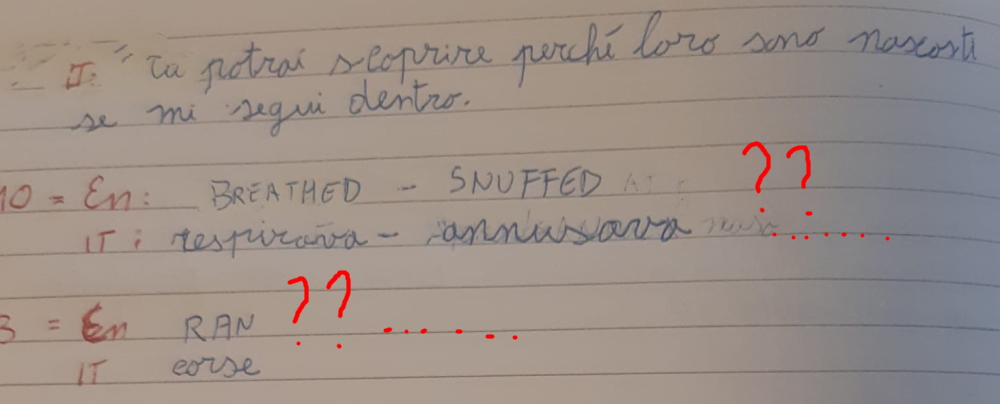 IT: Tu potrai scoprire perché loro sono nascosti
se mi segui dentro.
10 = En: BREATHED - SNUFFED ??
IT: respirava - annusava ........
3 = En RAN ?? ... . ..
IT corse